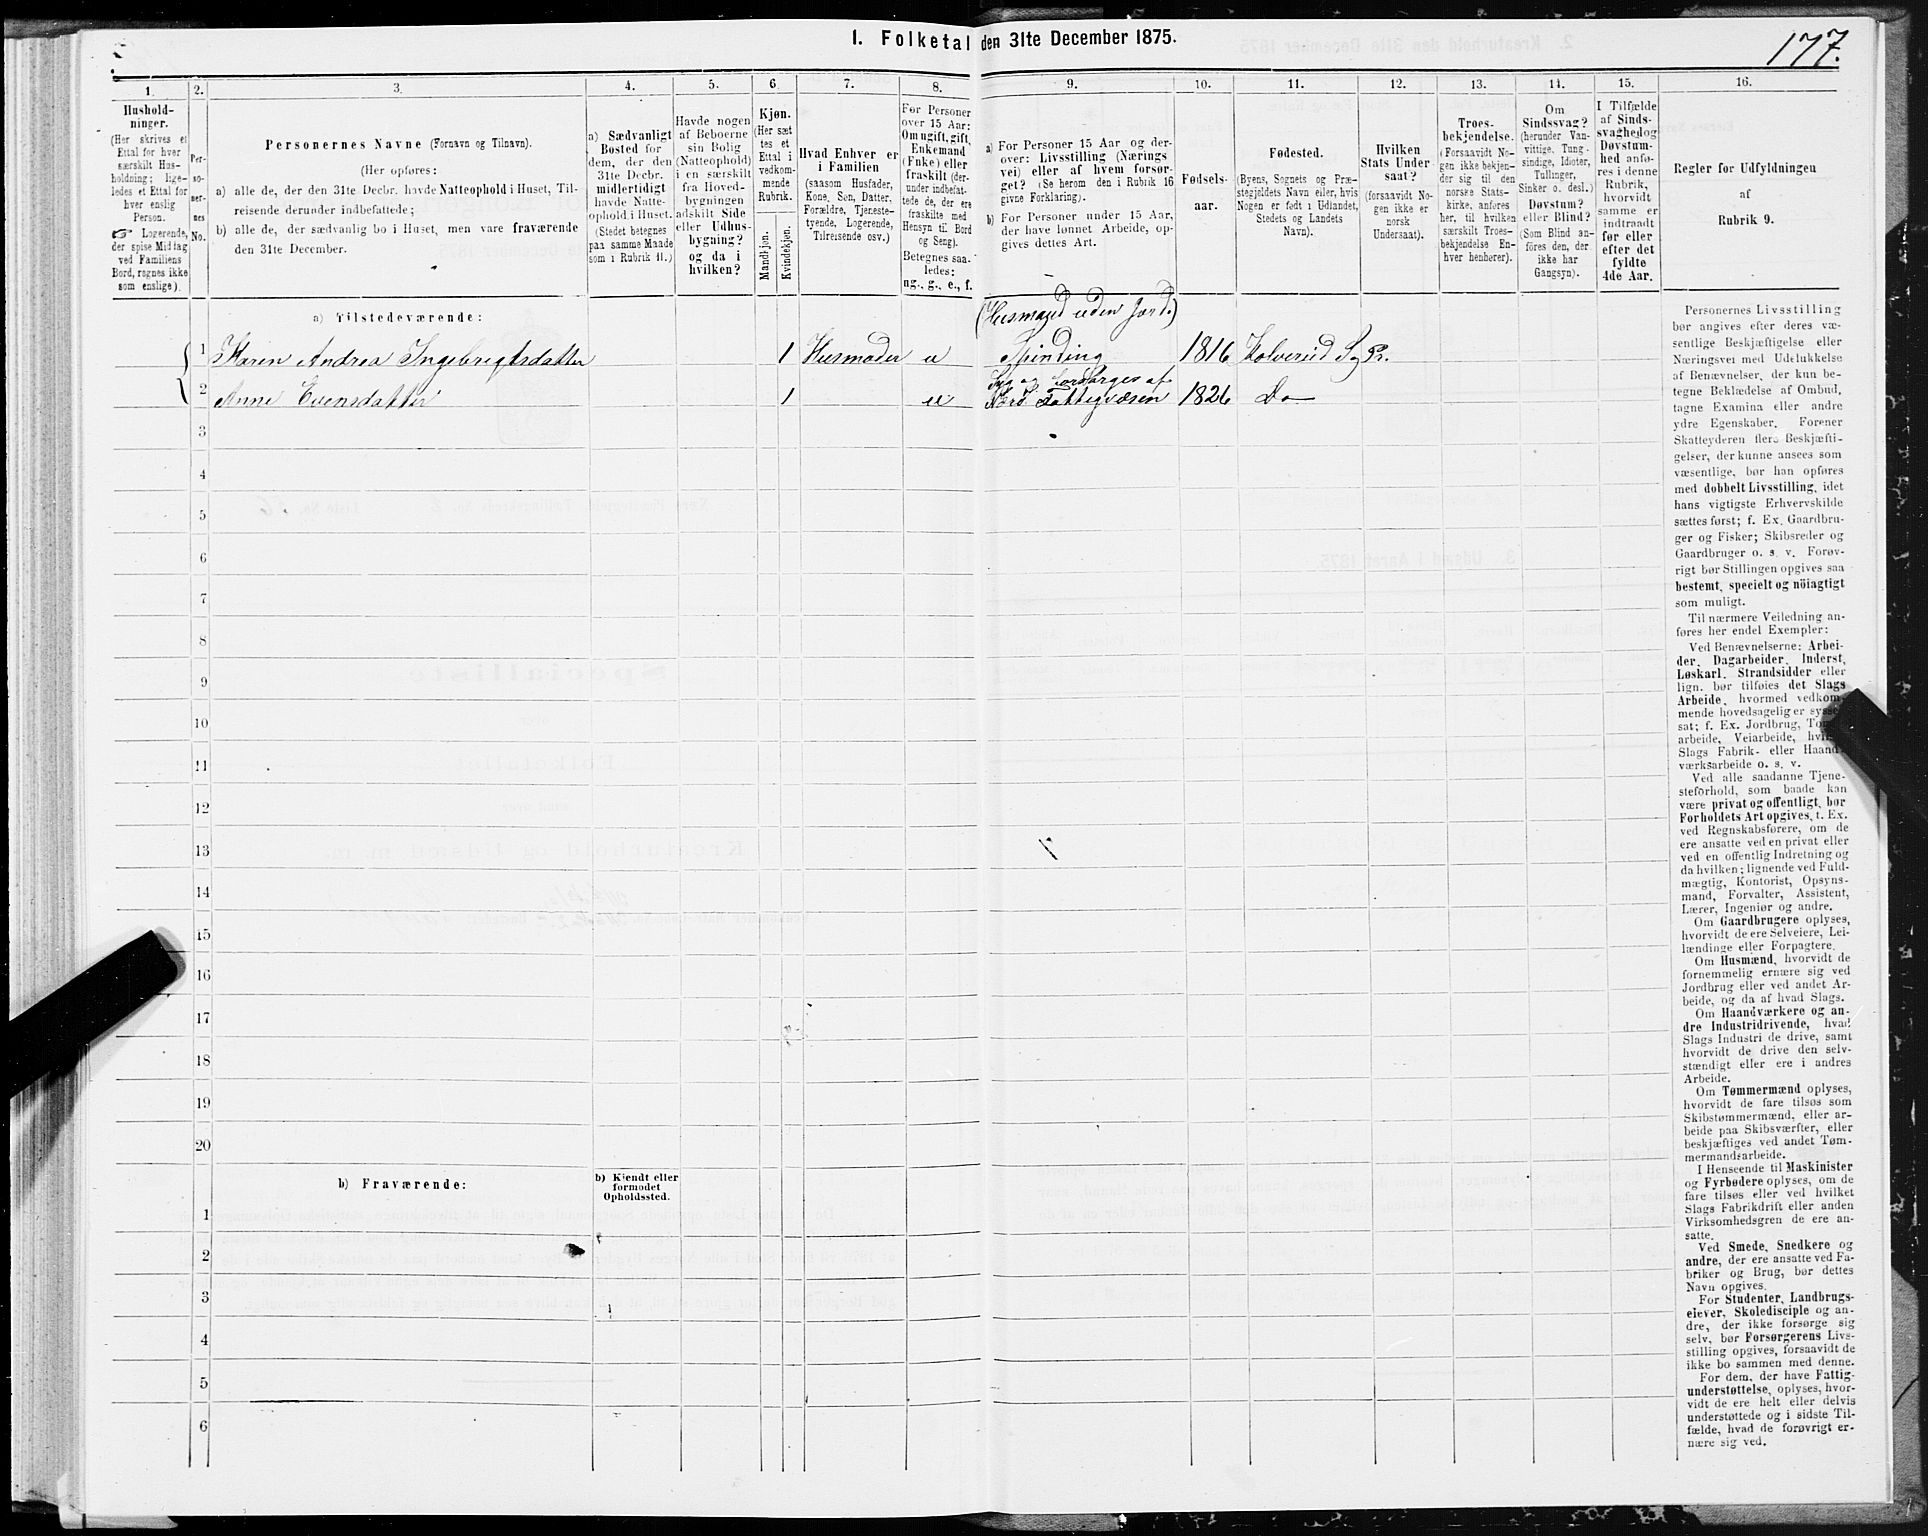 1. Folketal den 31te December 1875.
177.
1.
Hushold-
ninger.
(Her skrives et
Ettal for hver
særskilt Hus-
holdning; lige-
ledes et Ettal for
hver enslig
Person.
☞ Logerende,
der spise Middag
ved Familiens
Bord, regnes ikke
som enslige).
2.
Per-
so-
ner-
nes
No.
3.
Personernes Navne (Fornavn og Tilnavn).
(Her opføres:
a) alle de, der den 31te Decbr. havde Natteophold i Huset, Til-
reisende derunder indbefattede;
b) alle de, der sædvanlig bo i Huset, men vare fraværende
den 31te December.
4.
a) Sædvanligt
Bosted for
dem, der den
31te Decbr.
midlertidigt
havde Natte-
ophold i Huset.
(Stedet betegnes
paa samme Maade
som i Rubrik 11.)
5.
Havde nogen
af Beboerne
sin Bolig
(Natteophold)
i en særskilt
fra Hoved-
bygningen
adskilt Side
eller Udhus-
bygning?
og da i
hvilken?
6.
Kjøn.
(Her sæt
tes et
Ettal i
vedkom-
mende
Rubrik.
Mandkjøn.
Kvindekjøn.
7.
Hvad Enhver er
i Familien
(saasom Husfader,
Kone, Søn, Datter,
Forældre, Tjeneste-
tyende, Logerende,
Tilreisende osv.)
8.
For Personer
over 15 Aar:
Om ugift, gift,
Enkemand
(Enke) eller
fraskilt (der-
under indbefat-
tede de, der ere
fraskilte med
Hensyn til Bord
og Seng).
Betegnes saa-
ledes:
ug., g., e., f.
9.
a) For Personer 15 Aar og der-
over: Livsstilling (Nærings
vei) eller af hvem forsør-
get? (Se herom den i Rubrik 16
givne Forklaring).
b) For Personer under 15 Aar,
der have lønnet Arbeide, op-
gives dettes Art.
10.
Fødsels-
aar.
11.
Fødested.
(Byens, Sognets og Præ-
stegjeldets Navn eller, hvis
Nogen er født i Udlandet,
Stedets og Landets
Navn).
12.
Hvilken
Stats Under
saat?
(forsaavidt No-
gen ikke er
norsk
Undersaat).
13.
Troes-
bekjendelse.
(Forsaavidt No-
gen ikke bekjen-
der sig til den
norske Stats-
kirke, anføres
her, til hvilken
særskilt Troes-
bekjendelse En-
hver henhører).
14.
Om
Sindssvag?
(herunder Van-
vittige, Tung-
sindige, Idioter,
Tullinger,
Sinker o. desl.)
Døvstum?
eller Blind?
(Som Blind an-
føres den, der
ikke har
Gangsyn).
15.
I Tilfælde
af Sinds-
svaghed og
Døvstum-
hed anfø-
res i denne
Rubrik,
hvorvidt
samme er
indtraadt
før eller
efter det
fyldte
4de Aar.
16.
Regler for Udfyldningen
af
Rubrik 9.
a) Tilstedeværende:
(Husmand uden Jord.)
1 Karen Andrea Ingebrigtsdatter 1 Husmoder u Spinding 1816 Kolvereid S og Pr.
Syg og forsørges af
2 Anne Evensdatter 1 u Nærø Fattigvæsen 1826 Do
3
4
5
6
7
8
9
10
11
12
13
14
15
16
17
18
19
20
b) Fraværende:
b) Kjendt eller
formodet
Opholdssted.
1
2
3
4
5
6
Personernes Livsstilling
bør angives efter deres væ-
sentlige Beskjæftigelse eller
Næringsvei med Udelukkelse
af Benævnelser, der kun be-
tegne Beklædelse af Ombud,
tagne Examina eller andre
ydre Egenskaber. Forener
Skatteyderen flere Beskjæfti-
gelser, der kunne ansees som
væsentlige, bør han opføres
med dobbelt Livsstilling, idet
hans vigtigste Erhvervskilde
sættes først; f. Ex. Gaardbru-
ger og Fisker; Skibsreder og
Gaardbruger o. s. v. Forøv-
rigt bør Stillingen opgives saa
bestemt, specielt og nöiagtigt
som muligt.
Til nærmere Veiledning an-
føres her endel Exempler:
Ved Benævnelserne: Arbei-
der, Dagarbeider, Inderst,
Løskarl, Strandsidder eller
lign. bør tilføies det Slags
Arbeide, hvormed vedkom-
mende hovedsagelig er syssel-
sat; f. Ex. Jordbrug, Tomte-
arbeide, Veiarbeide, hvilket
Slags Fabrik- eller Haand-
værksarbeide o. s. v.
Ved alle saadanne Tjene-
steforhold, som baade kan
være privat og offentligt, bør
Forholdets Art opgives, t. Ex.
ved Regnskabsførere, om de
ere ansatte ved en privat eller
ved en offentlig Indretning og
da hvilken; lignende ved Fuld-
mægtig, Kontorist, Opsyns-
mand, Forvalter, Assistent,
Lærer, Ingeniør og andre.
Om Gaardbrugere oplyses,
hvorvidt de ere Selveiere, Lei-
lændinge eller Forpagtere.
Om Husmænd, hvorvidt de
fornemmelig ernære sig ved
Jordbrug eller ved andet Ar-
beide, og da af hvad Slags.
Om Haandværkere og an-
dre Industridrivende, hvad
Slags Industri de drive, samt
hvorvidt de drive den selv-
stændigt eller ere i andres
Arbeide.
Om Tømmermænd oplyses,
hvorvidt de fare tilsøs som
Skibstømmermænd, eller ar-
beide paa Skibsværfter, eller
beskjæftiges ved andet Tøm-
mermandsarbeide.
I Henseende til Maskinister
og Fyrbødere oplyses, om de
fare tilsøs eller ved hvilket
Slags Fabrikdrift eller anden
Virksomhedsgren de ere an-
satte.
Ved Smede, Snedkere og
andre, der ere ansatte ved Fa-
briker og Brug, bør dettes
Navn opgives.
For Studenter, Landbrugs-
elever, Skoledisciple og an-
dre, der ikke forsørge sig
selv, bør Forsørgerens Livs-
stilling opgives, forsaavidt de
ikke bo sammen med denne.
For dem, der have Fattig-
understøttelse, oplyses, hvor-
vidt de ere helt eller delvis
understøttede og i sidste Til-
fælde, hvad de forøvrigt er-
nære sig ved.